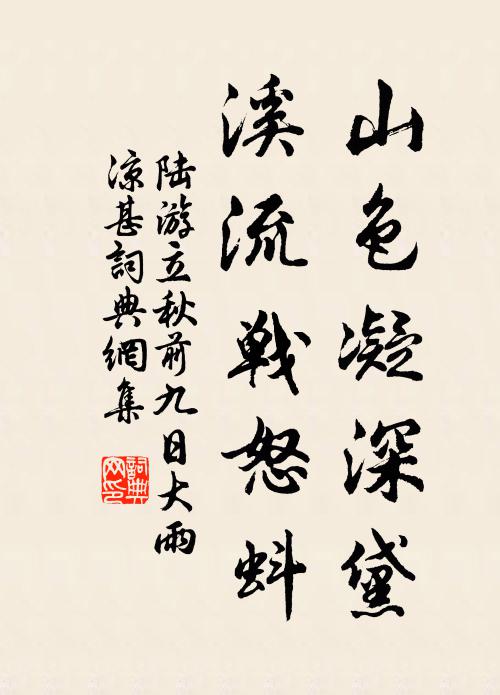 山色凝深黛
溪流戰怒蚪
陆游立秋前九日大雨
凉甚詞典網集
詞典
网印